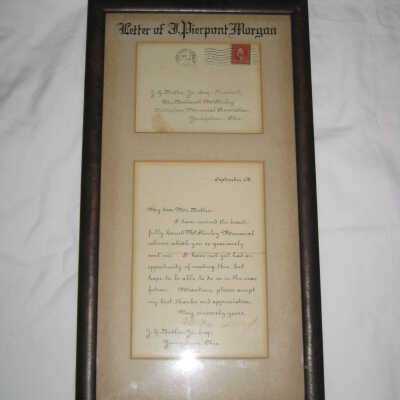 Letter of J. Pierpont Morgan
J. G. Butler Jr. Esq. President
The National McKinley
Birthplace Memorial Association
Youngstown, Ohio
September
My dear Mr. Butler:
I have received the beauti-
fully bound McKinley Memorial
volume which you so generously
sent me. I have not yet had an
opportunity of reading this, but
hope to be able to do so in the near
future. Meantime, please accept
my best thanks and appreciation.
Very sincerely yours,
J. G. Butler Jr. Esq.
Youngstown, Ohio